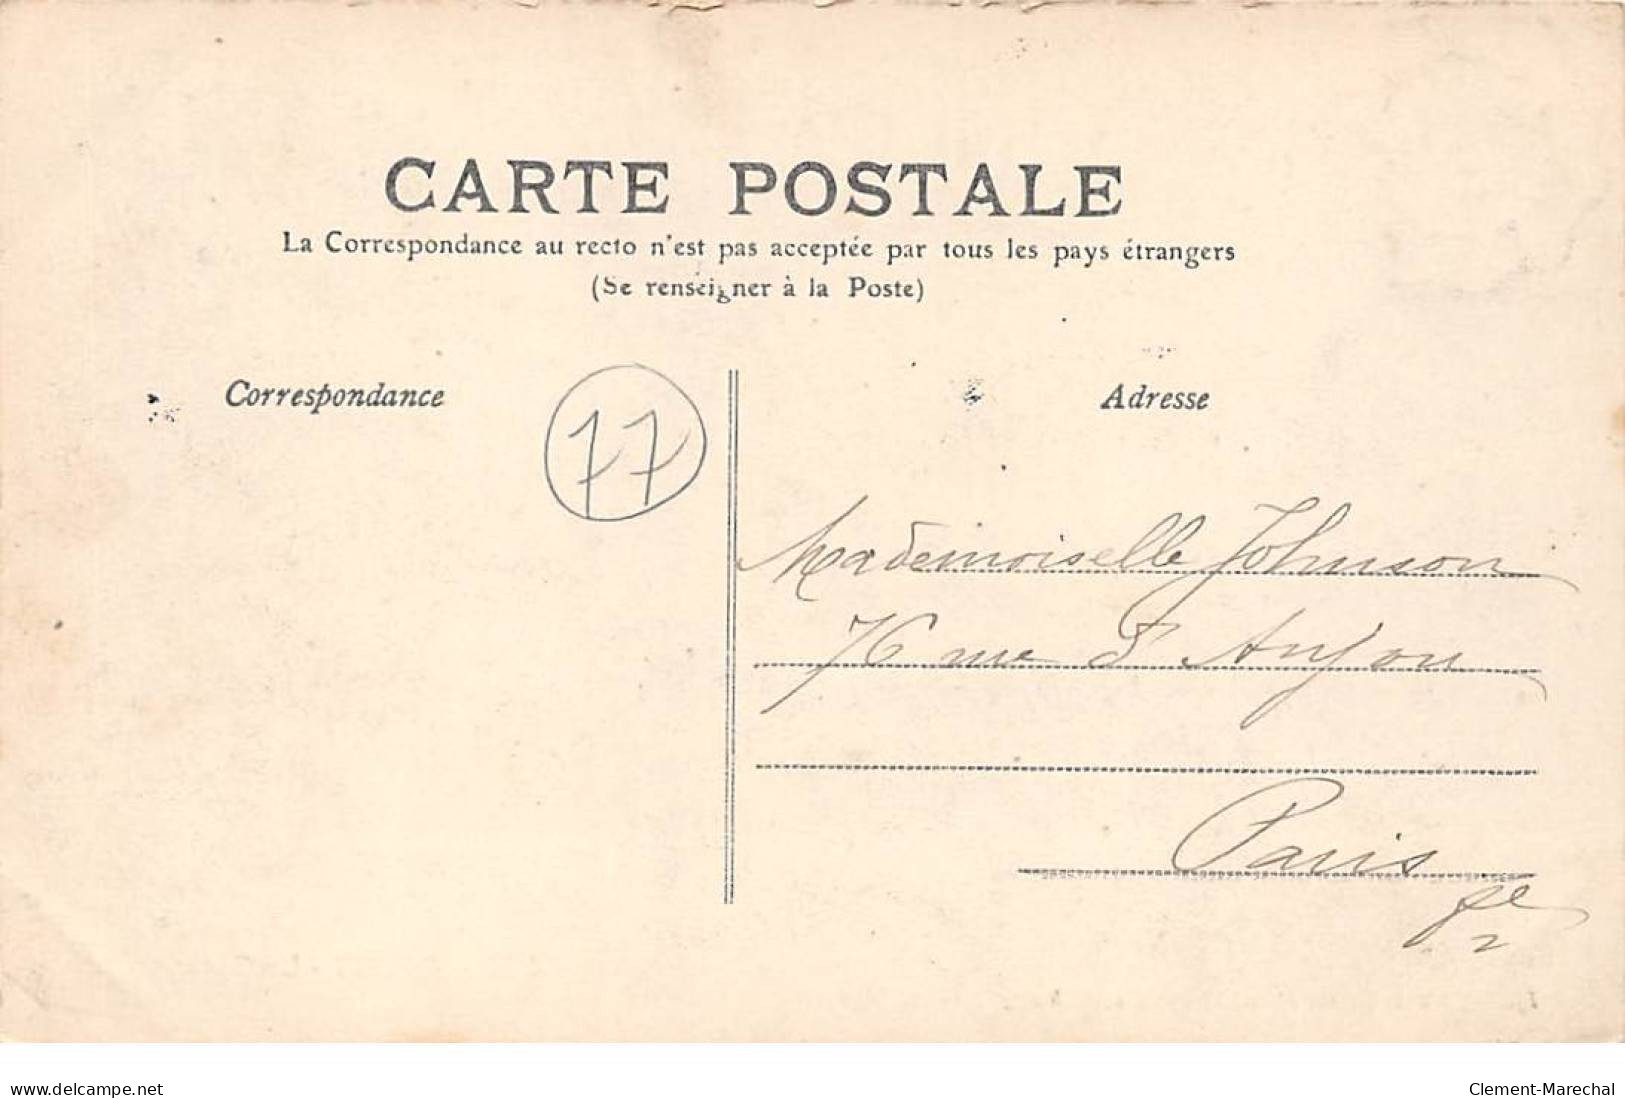 CARTE POSTALE
La Correspondance au recto n'est pas acceptée par tous les pays étrangers
(Se renseigner à la Poste)
Correspondance
77
Adresse
Mademoiselle Johnson
76 rue d'Anjou
Paris
www.delcampe.net
Clement-Marechal